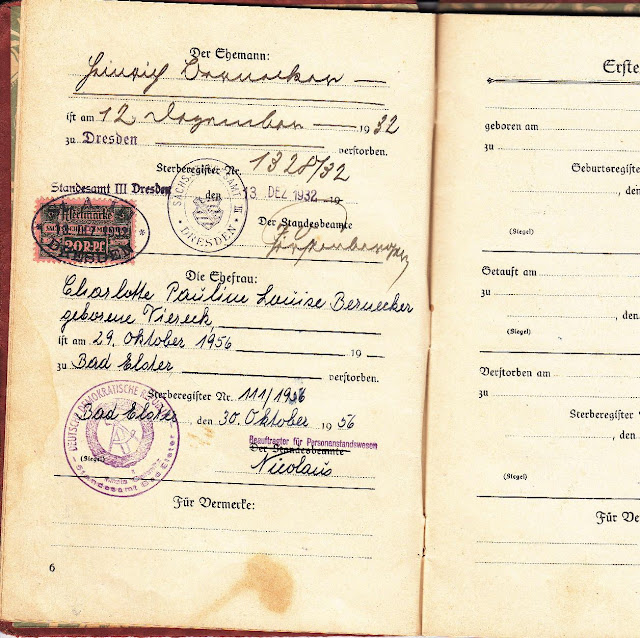 Der Ehemann:
Heinrich Bernecker
ist am 12 Dezember 1932
zu Dresden verstorben.
Sterberegister Nr. 1328/32
Standesamt III Dresden den 13. DEZ. 1932 19
Der Standesbeamte
DRESDEN
20 R.Pf.
DRESDEN
Die Ehefrau:
Charlotte Pauline Louise Bernecker
geborene Viereck
ist am 29. Oktober 1956 19
zu Bad Elster verstorben.
Sterberegister Nr. 111/1956
Bad Elster, den 30. Oktober 1956
Beauftragter für Personenstandswesen
Der Standesbeamte
(Siegel) Nicolaus
DEUTSCHE DEMOKRATISCHE
Standesamt Bad Elster
Für Vermerke:
6
Erste
geboren am
zu
Geburtsregister
, den
(Siegel)
Getauft am
zu
, den
(Siegel)
Verstorben am
zu
Sterberegister
, den
(Siegel)
Für Ve